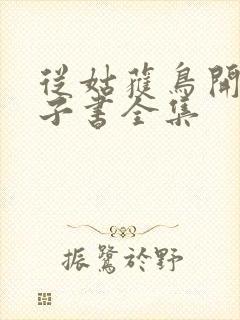 從姑蘓鳥開
子書全集
振鷺於野